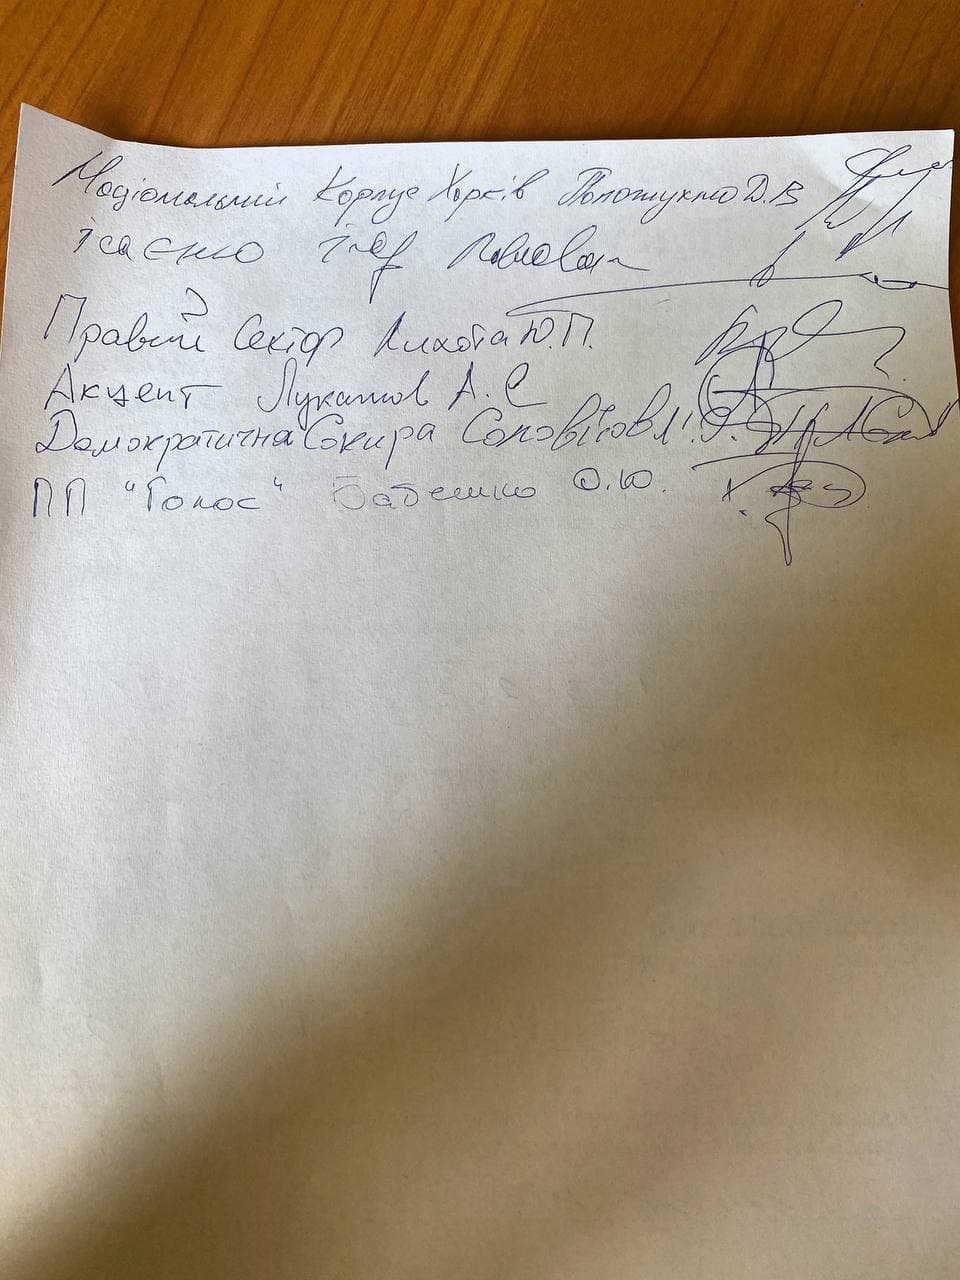 Національний Корпус Харків Д.В
Ісаєнко Ігор Павлович
Правий Сектор Лихота Ю.П.
Акцепт Лукашов А.С
Демократична Сокира Соловйов
ПП "Голос" Бабешко О.Ю.